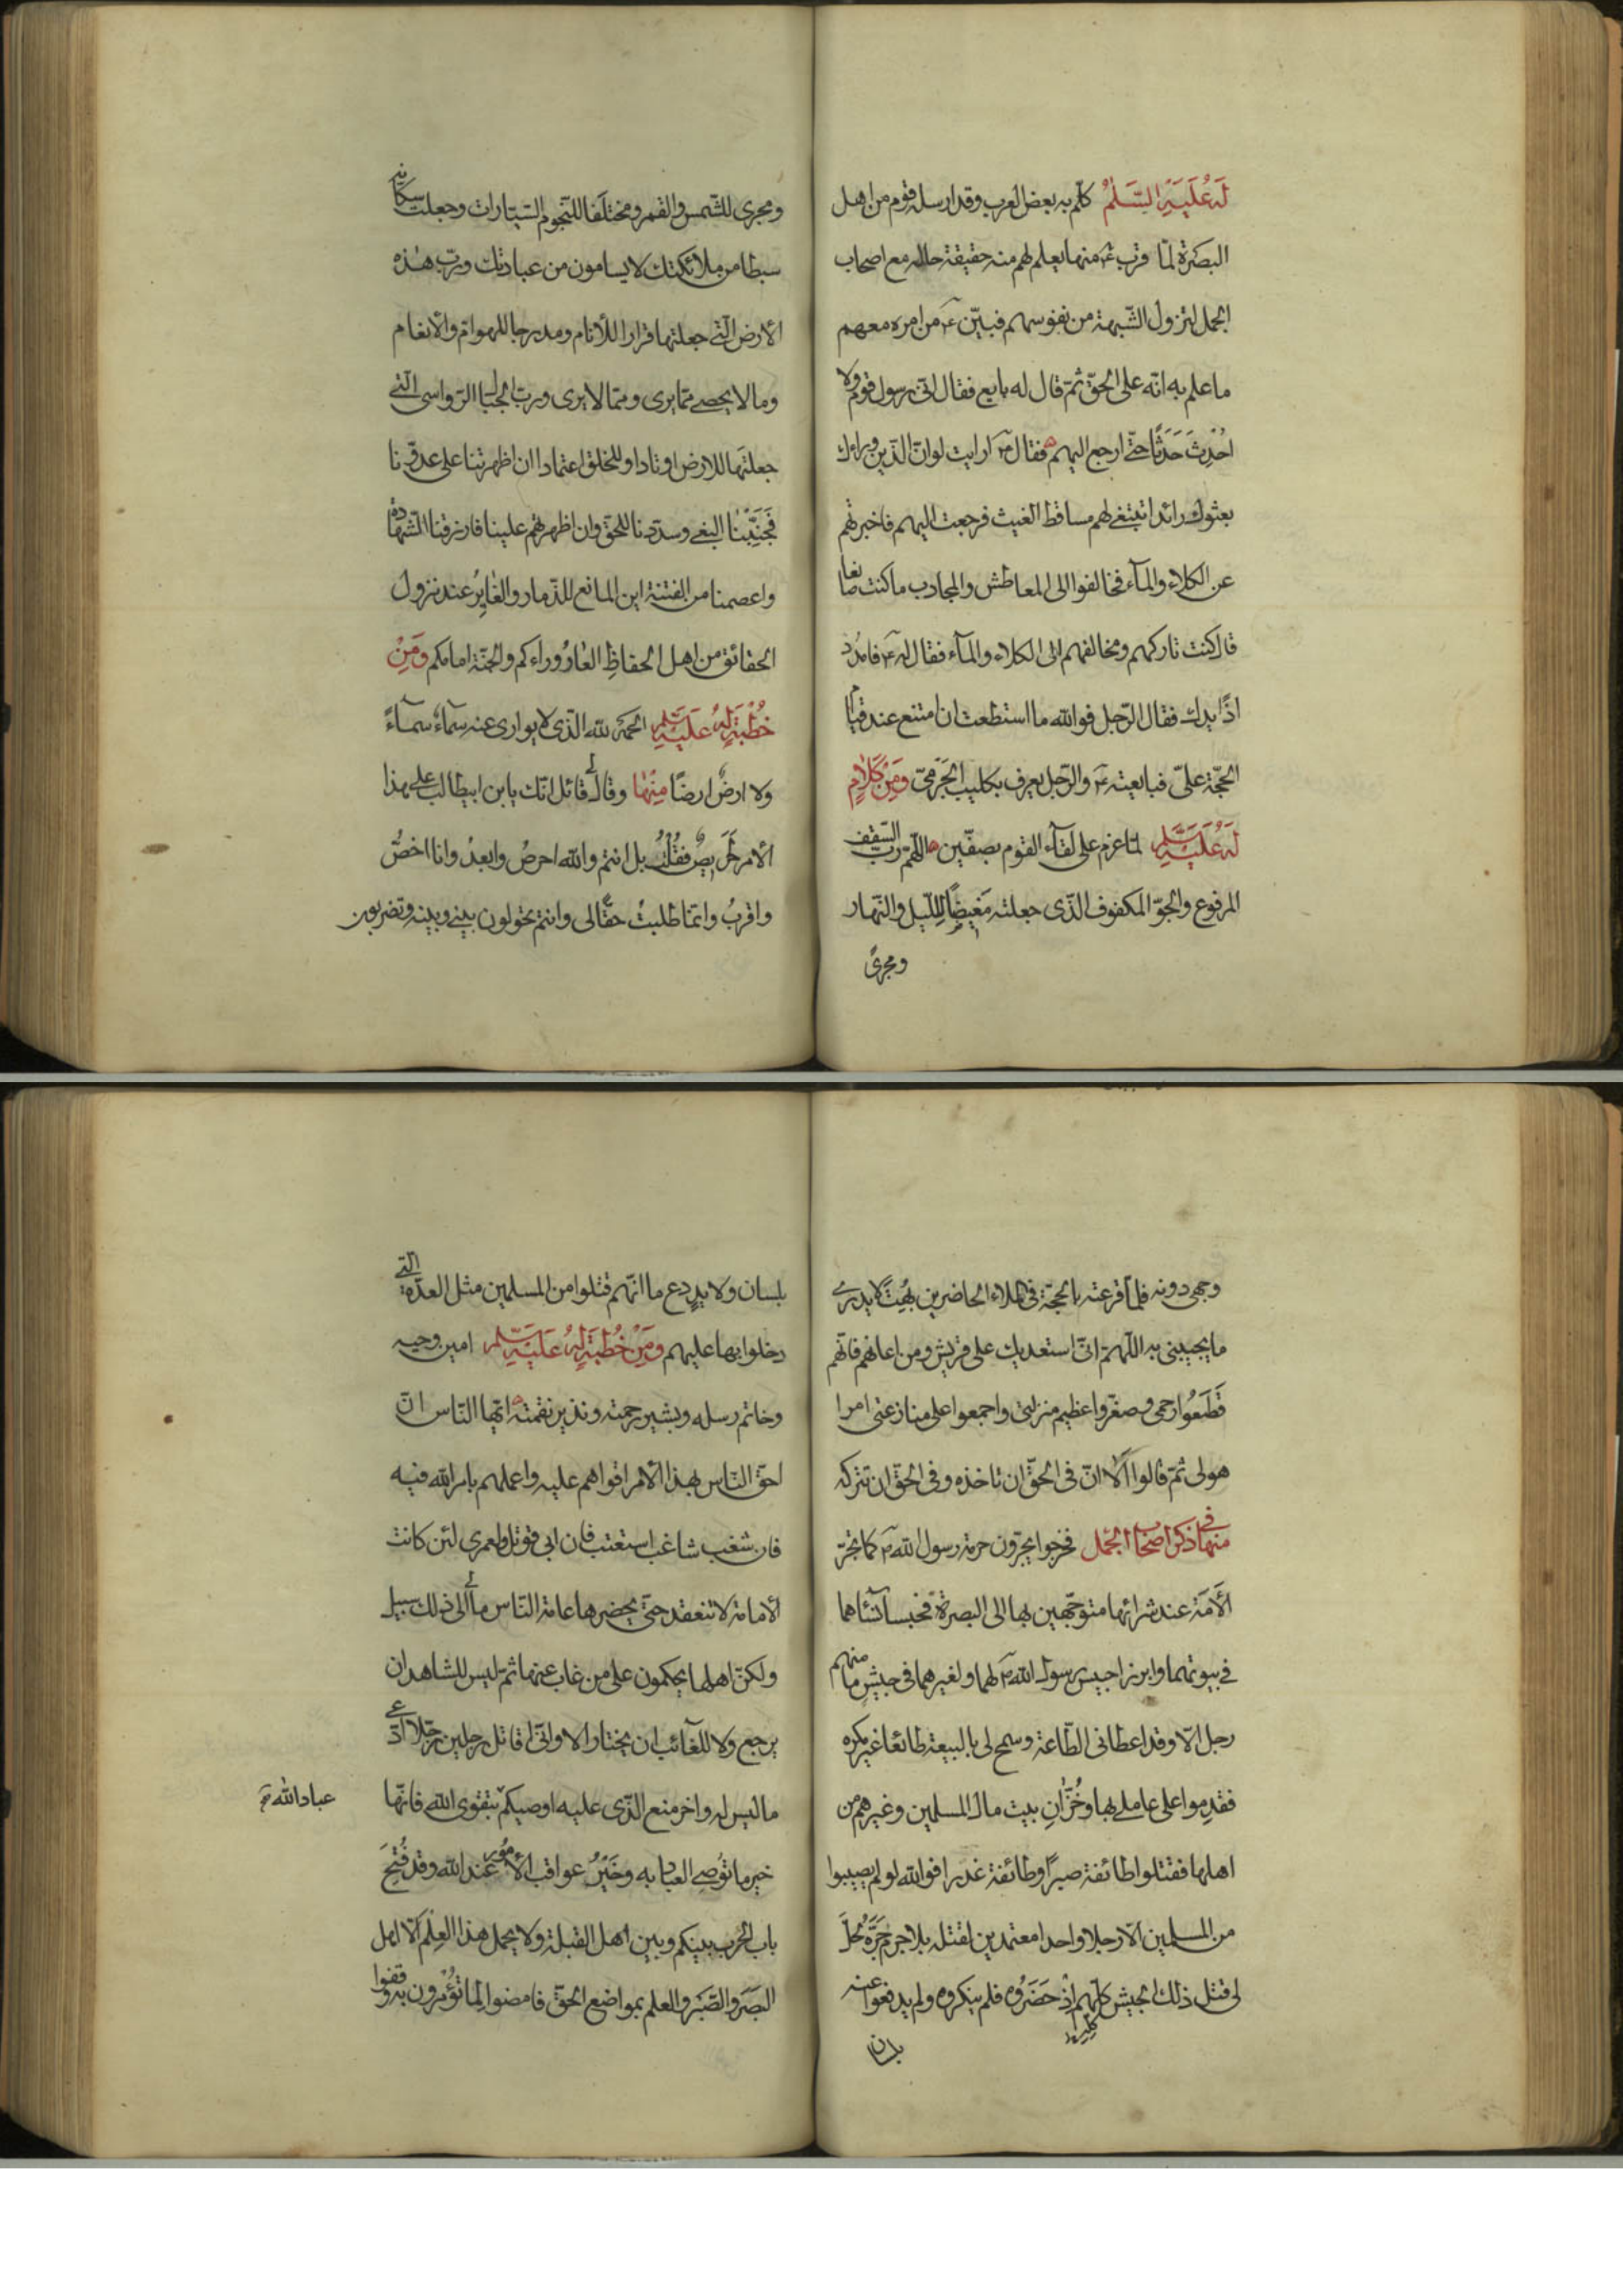 لَهُ عَلَيْهِ السَّلَامُ كلّم به بعض العرب وقد ارسله قوم من اهل
البصرة لمّا قرب ع منها ليعلم لهم منه حقيقة حاله مع اصحاب
الجمل لتزول الشّبهة من نفوسهم فبيّن ع من امره معهم
ما علم به انّه على الحقّ ثمّ قال له بايع فقال انّى رسول قوم ولا
اُحْدِثُ حَدَثًا حتّى ارجع اليهم فقال ع ارايت لو انّ الّذين وراءك
بعثوك رائدا تبتغى لهم مساقط الغيث فرجعت اليهم فاخبرتهم
عن الكلاء والمآء فخالفوا الى المعاطش والمجادب ما كنت صانعا
قال كنت تاركهم ومخالفهم الى الكلاء والمآء فقال له ع فامدُد
اذًا يدك فقال الرّجل فوالله ما استطعت ان امتنع عند قيام
الحجّة علىّ فبايعته ع والرّجل يعرف بكليب الجَرْمىّ وَمِنْ كَلَامٍ
لَهُ عَلَيْهِ السَّلَم لمّا عزم على لقآء القوم بصفّين اللّهمّ ربّ السّقف
المرفوع والجوّ المكفوف الّذى جعلته مَغِيضًا لِلّيل والنّهار
ومجرىً
ومجرى للشّمس والقمر ومختلفا للنّجوم السّيّارات وجعلت سكّانه
سبطا من ملائكتك لا يسامون من عبادتك وربّ هذه
الأرض الّتى جعلتها قرارا للأنام ومدرجا للهوامّ والأنعام
وما لا يحصى ممّا يرى وممّا لا يرى وربّ الجبال الرّواسى الّتى
جعلتها للارض اوتادا وللخلق اعتمادا ان اظهرتنا على عدوّنا
فَجَنِّبْنَا البغى وسدّدنا للحقّ وان اظهرتهم علينا فارزقنا الشّهادة
واعصمنا من الفتنة اين المانع للذّمار والغايِرُ عند نزول
الحقائق من اهل الحفاظِ العارُ وراءكم والجنّة امامكم وَمِنْ
خُطْبَةٍ لَهُ عَلَيْهِ السَّلَم الحمد لله الّذى لا يوارى عنه سمآءٌ سمآءً
ولا ارضٌ ارضًا مِنْهَا وقال لى قائل انّك يا بن ابيطالب على هذا
الأمر لَحَرِيصٌ فقُلْتُ بل انتم والله احرصُ وابعدُ وانا اخصُّ
واقربُ وانّما طلبتُ حقّا لى وانتم تحولون بينى وبينه وتضربون
وجهى دونه فلمّا قرعته بالحجّة فى الملاء الحاضرين بُهِتَ لا يدرى
ما يجيبنى به اللّهمّ انّى استعديك على قريش ومن اعانهم فانّهم
قَطَعُوا رحمى وصغّروا عظيم منزلتى واجمعوا على منازعتى امرا
هو لى ثمّ قالوا اَلَا انّ فى الحقّ ان تاخذه وفى الحقّ ان تتركه
منها فى ذكر اصحاب الجمل فخرجوا يجرّون حرمة رسول الله ص كما تجرّ
الأَمَة عند شرائها متوجّهين بها الى البصرة فحبسا نسآئهما
فى بيوتهما وابرزا حبيس رسول الله ص لهما ولغيرهما فى جيشٍ ما منهم
رجل الّا وقد اعطانى الطّاعة وسمح لى بالبيعة طائعا غير مكره
فقدِموا على عاملى بها وخُزّانِ بيت مال المسلمين وغيرهم من
اهلها فقتلوا طائفة صبرًا وطائفة غدرا فوالله لو لم يصيبوا
من المسلمين الّا رجلا واحدا معتمدين لقتله بلا جرم جَرَّهُ لحلّ
لى قتل ذلك الجيش كلّهم اِذْ حَضَرُوه فلم ينكروه ولم يدفعوا عنه
كلّه
بلسان
بلسان ولا يدٍ دع ما انّهم قتلوا من المسلمين مثل العدّة الّتى
دخلوا بها عليهم وَمِنْ خُطْبَةٍ لَهُ عَلَيْهِ السَّلَم امين وحيه
وخاتم رسله وبشير رحمته ونذير نقمته ايّها النّاس انّ
احقّ النّاس بهذا الأمر اقواهم عليه واعملهم بامر الله فيه
فان شغب شاغب استعتب فان ابى قوتل ولعمرى لئن كانت
الأمامة لا تنعقد حتّى يحضرها عامة النّاس ما الى ذلك سبيل
ولكنّ اهلها يحكمون على من غاب عنها ثمّ ليس للشاهد ان
يرجع ولا للغآئب ان يختار الا وانّى اقاتل رجلين رجلا ادّعى
ما ليس له واخر منع الّذى عليه اوصيكم بتقوى الله فانّها
عباد الله
خير ما تَوَاصى العباد به وخَيْرُ عواقب الأمُور عند الله وقد فُتِحَ
باب الحرب بينكم وبين اهل القبلة ولا يحمل هذا العِلْم الّا اهل
البَصَرِ والصَّبْر والعلم بمواضع الحقّ فامضوا لِمَا تُؤْمَرون به وقفوا